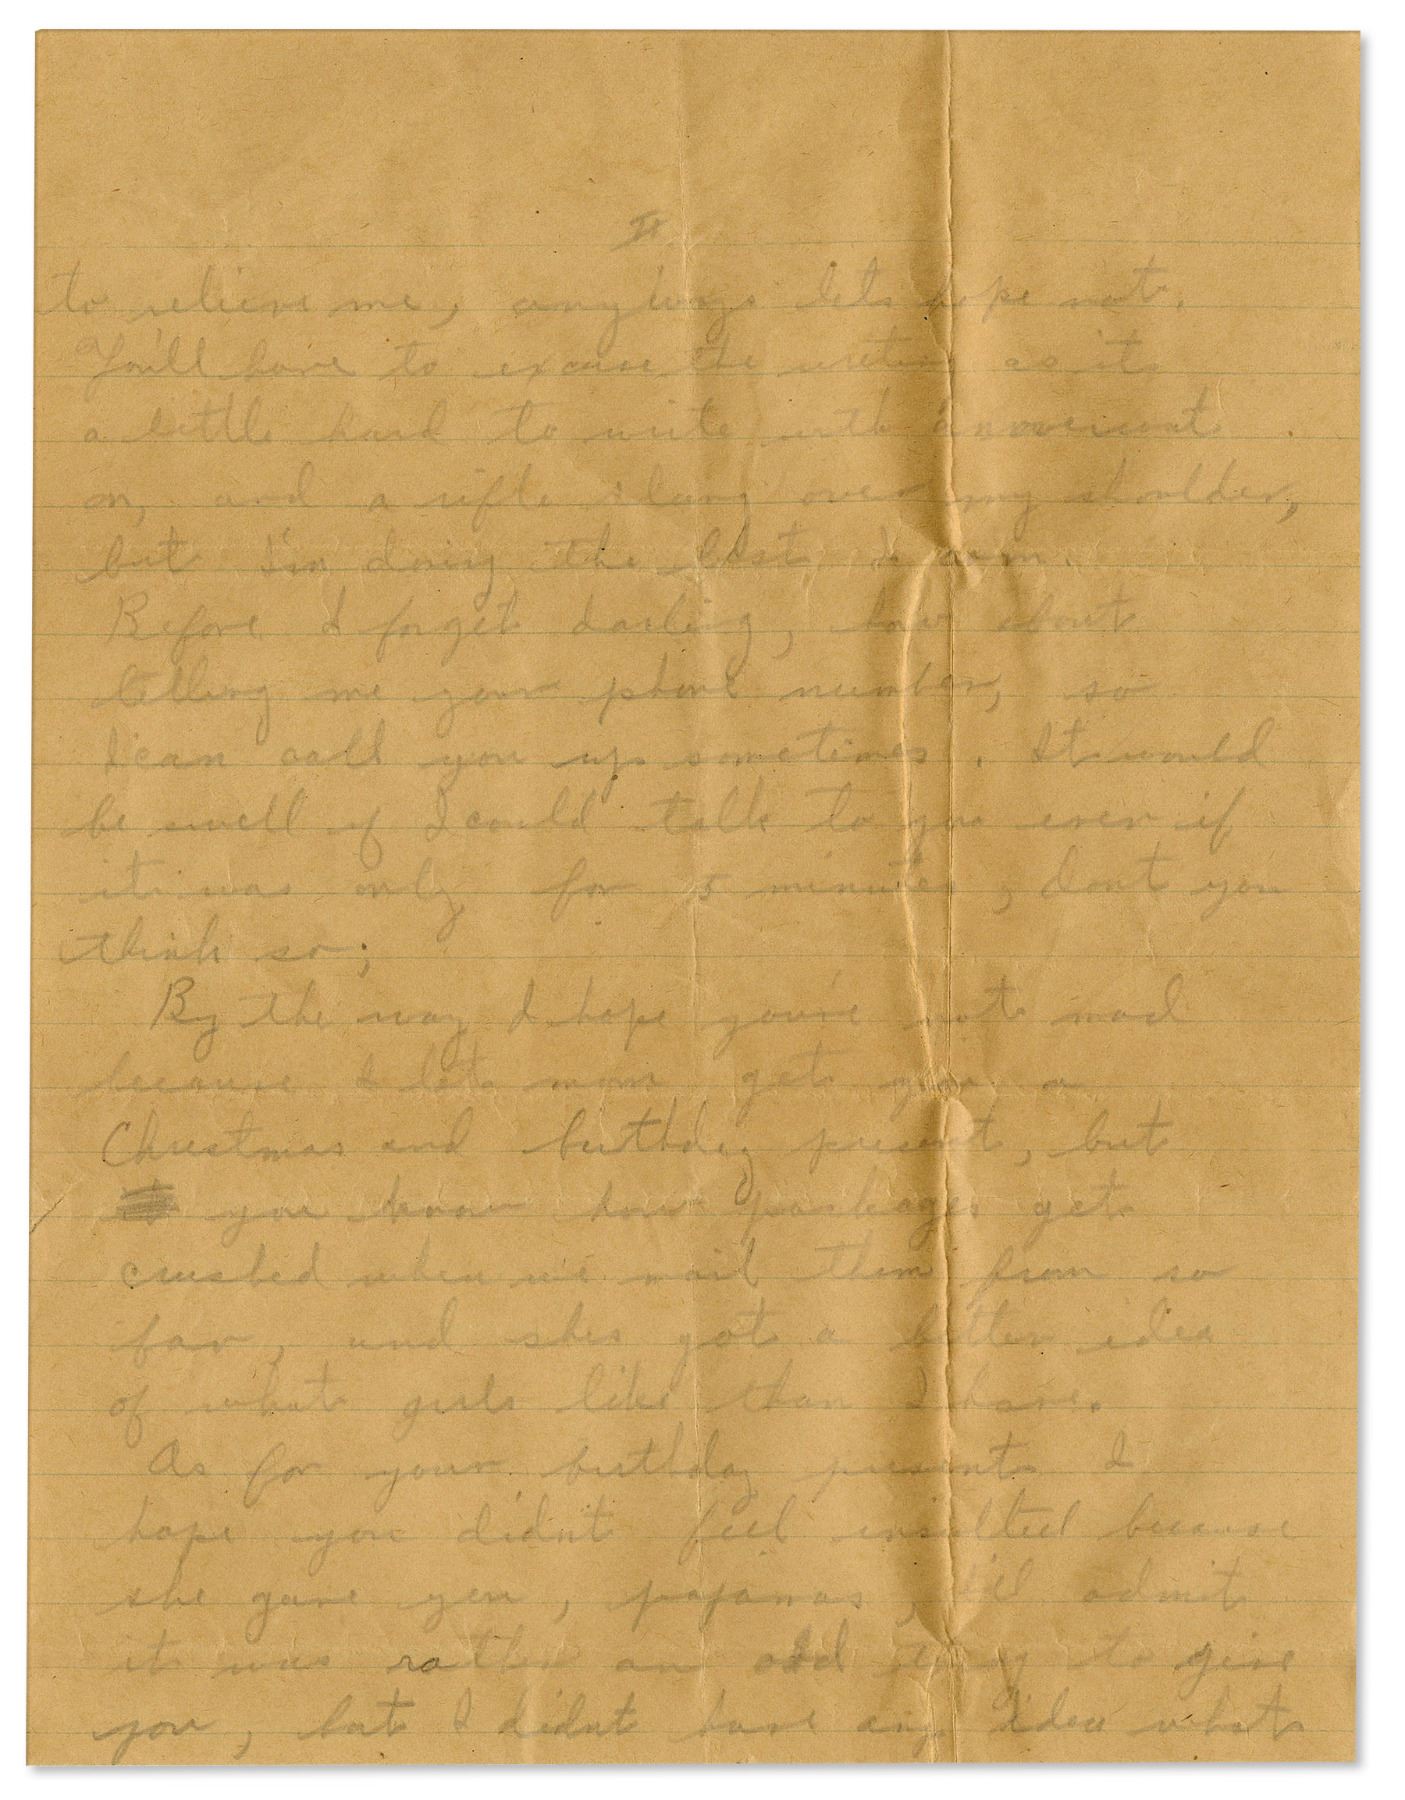 II
to relieve me, anyways lets hope not.
You'll have to excuse the writing as its
a little hard to write with an overcoat
on, and a rifle slung over my shoulder,
but I'm doing the best I can.
Before I forget darling, how about
telling me your phone number, so
I can call you up sometimes. It would
be swell if I could talk to you even if
it was only for 5 minutes, dont you
think so;
By the way I hope you're not mad
because I let mom get you a
Christmas and birthday present, but
you know how packages get
crushed when we mail them from so
far, and shes got a better idea
of what girls like than I have.
As for your birthday present I
hope you didnt feel insulted because
she gave you, pajamas, I'll admit
it was rather an odd thing to give
you, but I didnt have any idea whats